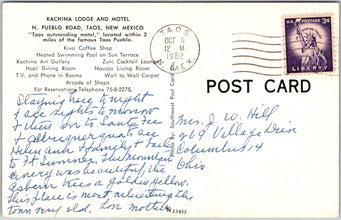 KACHINA LODGE AND MOTEL
N. PUEBLO ROAD, TAOS, NEW MEXICO
"Taos outstanding motel," located within 2
miles of the famous Taos Pueblo.
Kiva Coffee Shop
Heated Swimming Pool on Sun Terrace
Kachina Art Gallery Zuni Cocktail Lounge
Hopi Dining Room Navajo Living Room
T.V. and Phone in Rooms Wall to Wall Carpet
Arcade of Shops
For Reservations Telephone 758-2275.
TAOS
OCT 5
12 M
1962
N. MEX.
3¢
LIBERTY
POST CARD
Staying here to night
& see sights to morrow
& then on to Santa Fe
& Albuquerque to see
Helen and family & back
to Ft Sumner. The Mountain
scenery was beautiful, the
Aspen trees a golden yellow.
This place is most interesting the
town very old. Love Mother
Mrs. J. W. Hill
969 Village Drive
Columbus 14
Ohio
23432